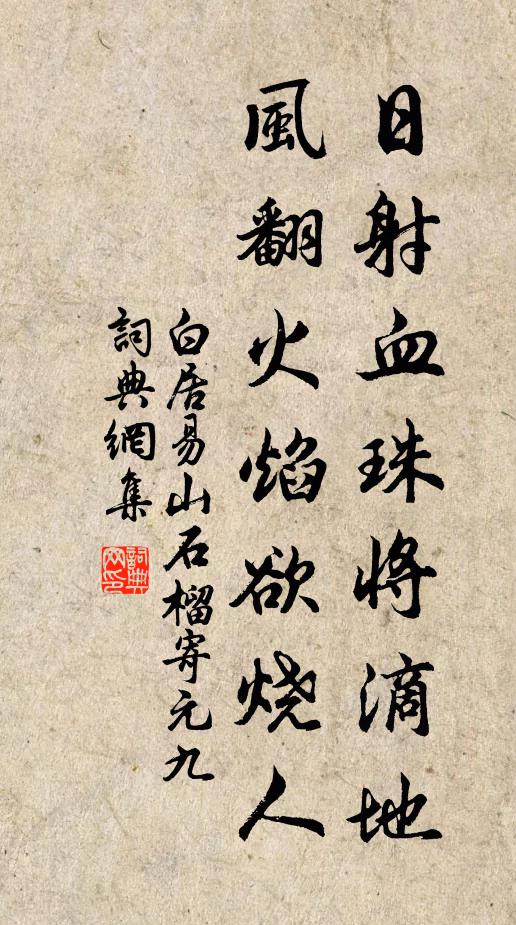 日射血珠将滴地
風翻火焰欲烧人
白居易山石榴寄元九
詞典網集
詞典网印